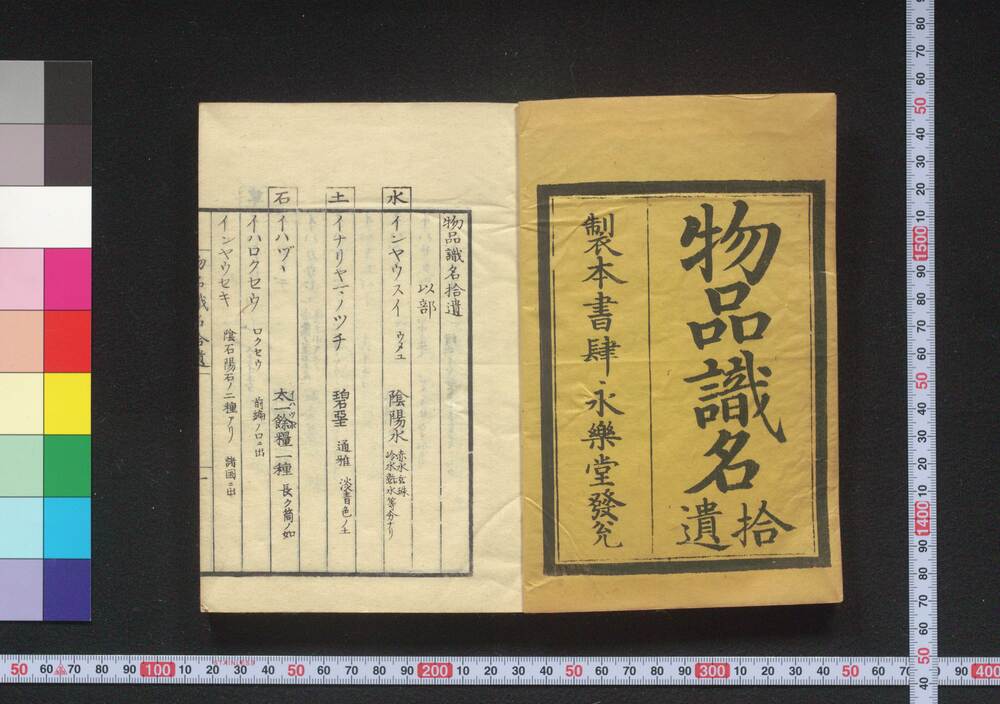 物品識名
拾遺
製本書肆 永樂堂發兌
物品識名拾遺
以部
水 インヤウスイ ウメユ 陰陽水
土 イナリヤマノツチ 碧堊 通雅 淡青色ノ土
石 イハヅヽ 太一餘糧一種 長ク筒ノ如
イハロクセウ ロクセウ 前編ノロニ出
インヤウセキ 陰石陽石ノ二種アリ 諸國ニ出
50 60 70 80 90 100 10 20 30 40 50 60 70 80 90 200 10 20 30 40 50 60 70 80 90 300 10 20 30 40 50 60 70 80 90 400
80 70 60 50 40 30 20 10 1500 90 80 70 60 50 40 30 20 10 1400 90 80 70 60 50 40